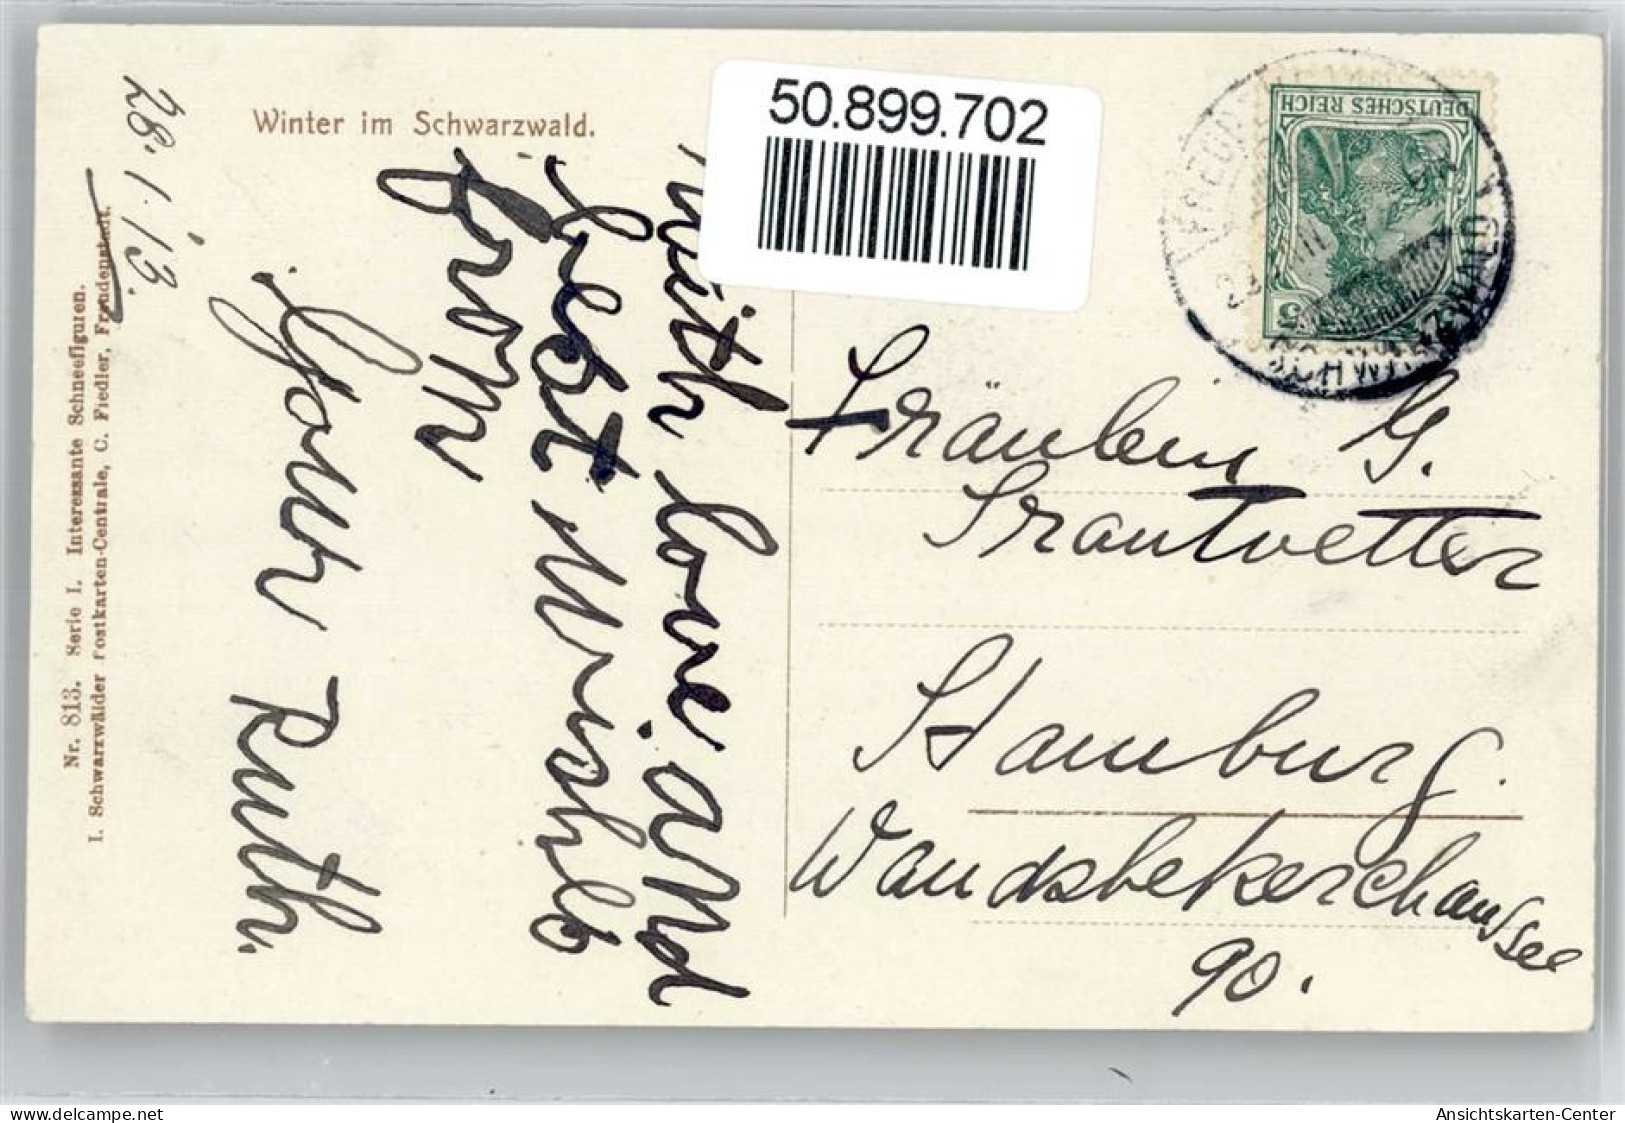 50.899.702
Winter im Schwarzwald.
28.1.13.
Nr. 813. Serie I. Interessante Schneefiguren.
I. Schwarzwälder Postkarten-Centrale, C. Fiedler, Freudenstadt.
With love and
best wishes
from
Your Ruth.
DEUTSCHES REICH
5
SCHWARZWALD
Fräulein G.
Trautvetter
Hamburg.
Wandsbekerchaussee
90.
www.delcampe.net
Ansichtskarten-Center